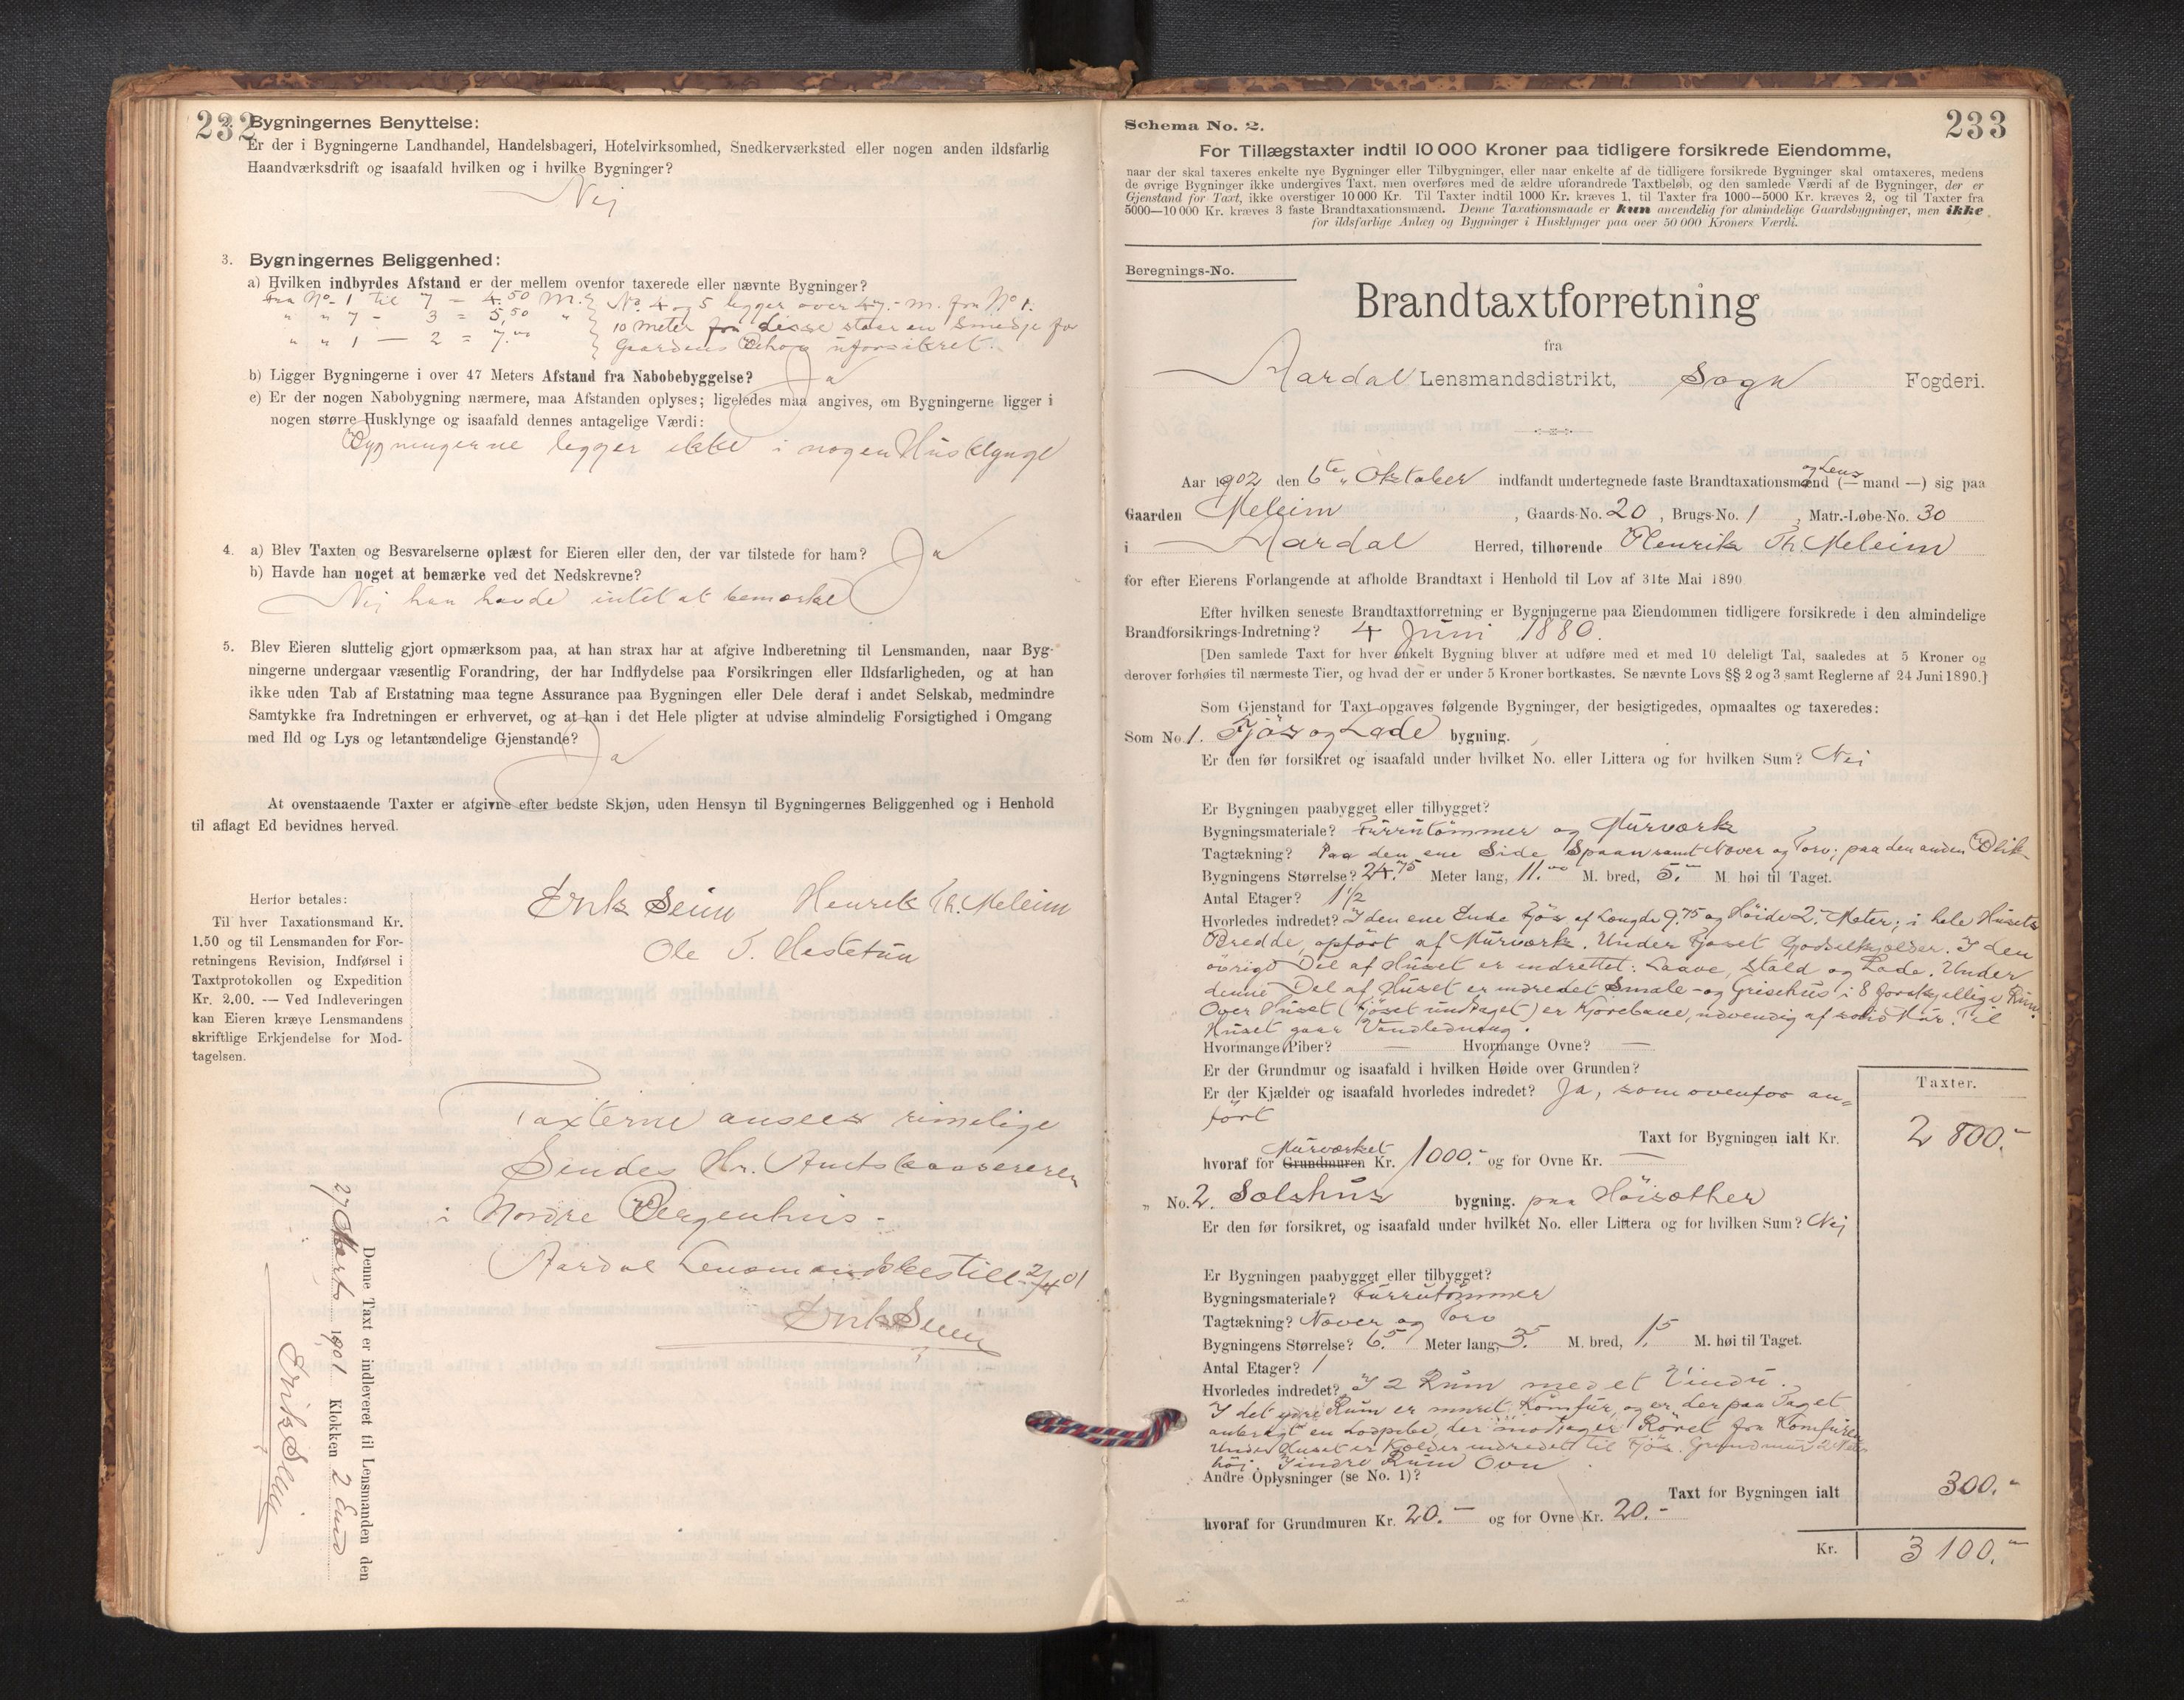 232
2. Bygningernes Benyttelse:
Er der i Bygningerne Landhandel, Handelsbageri, Hotelvirksomhed, Snedkerværksted eller nogen anden ildsfarlig
Haandværksdrift og isaafald hvilken og i hvilke Bygninger?
Nej
3. Bygningernes Beliggenhed:
a) Hvilken indbyrdes Afstand er der mellem ovenfor taxerede eller nævnte Bygninger?
Fra No 1 til 7 = 4.50 M. No. 4 og 5 legger over 47.- m. fra No 1.
" " 7 - 3 = 5,50 " 10 Meter fra disse staar en Smedje for
" " 1 — 2 = 7.00 Gaardens Behov uforsikret.
b) Ligger Bygningerne i over 47 Meters Afstand fra Nabobebyggelse? Ja
c) Er der nogen Nabobygning nærmere, maa Afstanden oplyses; ligeledes maa angives, om Bygningerne ligger i
nogen større Husklynge og isaafald dennes antagelige Værdi:
Bygningerne legger ikke i nogen Husklynge
4. a) Blev Taxten og Besvarelserne oplæst for Eieren eller den, der var tilstede for ham? Ja
b) Havde han noget at bemærke ved det Nedskrevne?
Nej han havde intet at bemærke
5. Blev Eieren sluttelig gjort opmærksom paa, at han strax har at afgive Indberetning til Lensmanden, naar Byg-
ningerne undergaar væsentlig Forandring, der har Indflydelse paa Forsikringen eller Ildsfarligheden, og at han
ikke uden Tab af Erstatning maa tegne Assurance paa Bygningen eller Dele deraf i andet Selskab, medmindre
Samtykke fra Indretningen er erhvervet, og at han i det Hele pligter at udvise almindelig Forsigtighed i Omgang
med Ild og Lys og letantændelige Gjenstande?
Ja
At ovenstaaende Taxter er afgivne efter bedste Skjøn, uden Hensyn til Bygningernes Beliggenhed og i Henhold
til aflagt Ed bevidnes herved.
Erik Seim Henrik Th. Meleim
Ole T. Hestetun
Herfor betales:
Til hver Taxationsmand Kr.
1.50 og til Lensmanden for For-
retningens Revision, Indførsel i
Taxtprotokollen og Expedition
Kr. 2.00. — Ved Indleveringen
kan Eieren kræve Lensmandens
skriftlige Erkjendelse for Mod-
tagelsen.
Taxterne ansees rimelige
Sendes Hr. Amtskassereren
i Nordre Bergenhus -
Aardal Lensmandsbestill. 2/4 01
Erik Seim
Denne Taxt er indleveret til Lensmanden den
27 Marts 1901 Klokken 2 Emd
Erik Seim
233
Schema No. 2.
For Tillægstaxter indtil 10 000 Kroner paa tidligere forsikrede Eiendomme,
naar der skal taxeres enkelte nye Bygninger eller Tilbygninger, eller naar enkelte af de tidligere forsikrede Bygninger skal omtaxeres, medens
de øvrige Bygninger ikke undergives Taxt, men overføres med de ældre uforandrede Taxtbeløb, og den samlede Værdi af de Bygninger, der er
Gjenstand for Taxt, ikke overstiger 10 000 Kr. Til Taxter indtil 1000 Kr. kræves 1, til Taxter fra 1000—5000 Kr. kræves 2, og til Taxter fra
5000—10 000 Kr. kræves 3 faste Brandtaxationsmænd. Denne Taxationsmaade er kun anvendelig for almindelige Gaardsbygninger, men ikke
for ildsfarlige Anlæg og Bygninger i Husklynger paa over 50 000 Kroners Værdi.
Beregnings-No.
Brandtaxtforretning
fra
Aardal Lensmandsdistrikt, Sogn Fogderi.
og Lens
Aar 1902 den 6te Oktober indfandt undertegnede faste Brandtaxationsmænd (— mand —) sig paa
Gaarden Meleim, Gaards-No. 20, Brugs-No. 1, Matr.-Løbe-No. 30
i Aardal Herred, tilhørende Henrik Th. Meleim
for efter Eierens Forlangende at afholde Brandtaxt i Henhold til Lov af 31te Mai 1890
Efter hvilken seneste Brandtaxtforretning er Bygningerne paa Eiendommen tidligere forsikrede i den almindelige
Brandforsikrings-Indretning? 4 Juni 1880.
[Den samlede Taxt for hver enkelt Bygning bliver at udføre med et med 10 deleligt Tal, saaledes at 5 Kroner og
derover forhøies til nærmeste Tier, og hvad der er under 5 Kroner bortkastes. Se nævnte Lovs §§ 2 og 3 samt Reglerne af 24 Juni 1890.]
Som Gjenstand for Taxt opgaves følgende Bygninger, der besigtigedes, opmaaltes og taxeredes:
Som No. 1. Fjøs og Lade bygning.
Er den før forsikret og isaafald under hvilket No. eller Littera og for hvilken Sum? Nei
Er Bygningen paabygget eller tilbygget?
Bygningsmateriale? Furrutømmer og Murværk
Tagtækning? Paa den ene Side Spaan samt Næver og Torv; paa den anden Blik
Bygningens Størrelse? 24.75 Meter lang, 11.00 M. bred, 5.- M. høi til Taget.
Antal Etager? 1 1/2
Hvorledes indredet? I den ene Ende Fjøs af Længde 9.75 og Høide 2.- Meter; i hele Husets
Bredde, opført af Murværk. Under Fjøset Gjødselkjælder. I den
øvrige Del af Huset er indrettet: Laave, Stald og Lade. Under
denne Del af Huset er indredet Smale- og Grisehus i 8 forskjellige Rum.
Over Huset (Fjøset undtaget) er Kjørebane, udvendig af solid Mur. Til
Huset gaar Vandledning.
Hvormange Piber? — Hvormange Ovne? —
Er der Grundmur og isaafald i hvilken Høide over Grunden?
Er der Kjælder og isaafald hvorledes indredet? Ja, som ovenfor an-
ført
Taxter.
Taxt for Bygningen ialt Kr. 2 800.-
Murværket
hvoraf for Grundmuren Kr. 1000.- og for Ovne Kr. —
" No. 2. Sælshus bygning. paa Høisæther
Er den før forsikret, og isaafald under hvilket No. eller Littera og for hvilken Sum? Nej
Er Bygningen paabygget eller tilbygget?
Bygningsmateriale? Furrutømmer
Tagtækning? Næver og Torv
Bygningens Størrelse? 6.5 Meter lang, 3.5 M. bred, 1.5 M. høi til Taget.
Antal Etager? 1
Hvorledes indredet? I 2 Rum med et Vindu.
I det ydre Rum er muret Komfur, og er der paa Taget
anbragt en Lodpibe, der modtager Røret fra Komfuren
Under Huset er Kjelder indredet til Fjøs. Grundmur 2 Meter
høi. I indre Rum Ovn
Andre Oplysninger (se No. 1)?
Taxt for Bygningen ialt 300.-
hvoraf for Grundmuren Kr. 20.- og for Ovne Kr. 20.-
Kr. 3 100.-